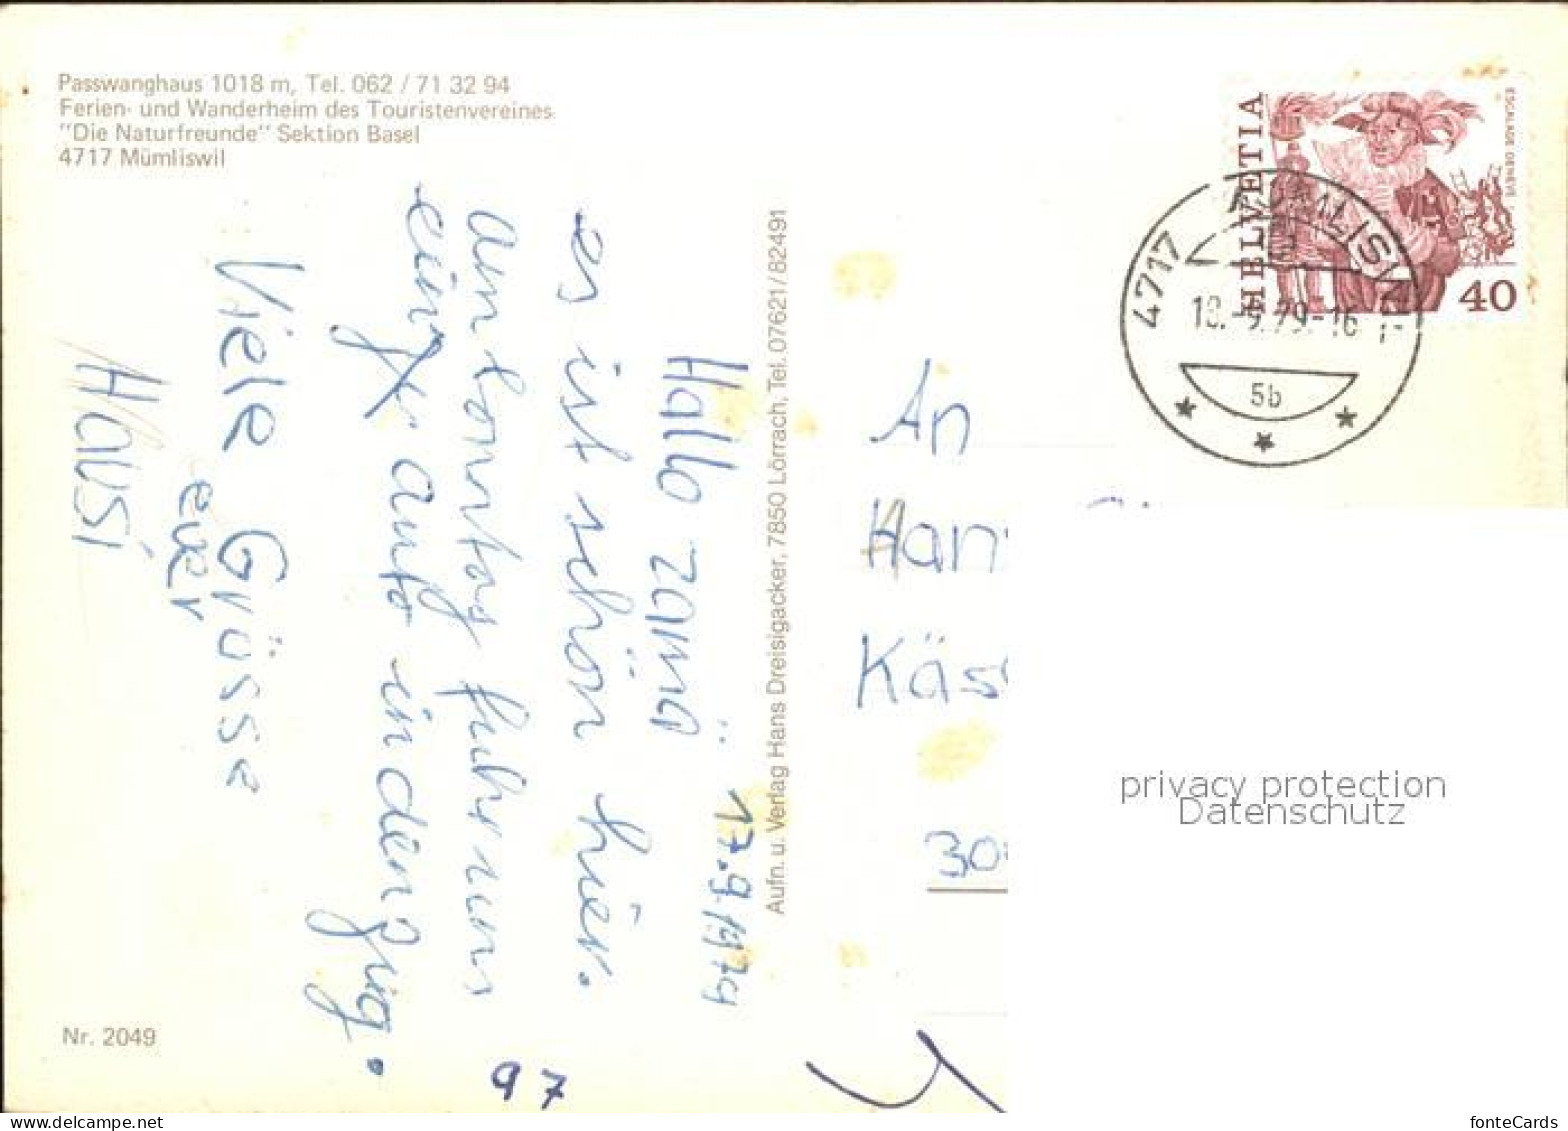 Passwanghaus 1018 m, Tel. 062 / 71 32 94
Ferien- und Wanderheim des Touristenvereines
"Die Naturfreunde" Sektion Basel
4717 Mümliswil
HELVETIA
ESCALADE GENÈVE
40
4717 MÜMLISWIL
18.-9.79-16
5b
17.9.1979
Hallo zämä
es ist schön hier.
am sonntag fuhr uns
ein auto in den
Viele Grüsse
euer
Hausi
Aufn. u. Verlag Hans Dreisigacker, 7850 Lörrach, Tel. 07621/82491
An
Han
Käs
30
privacy protection
Datenschutz
Nr. 2049
97
www.delcampe.net
fonteCards